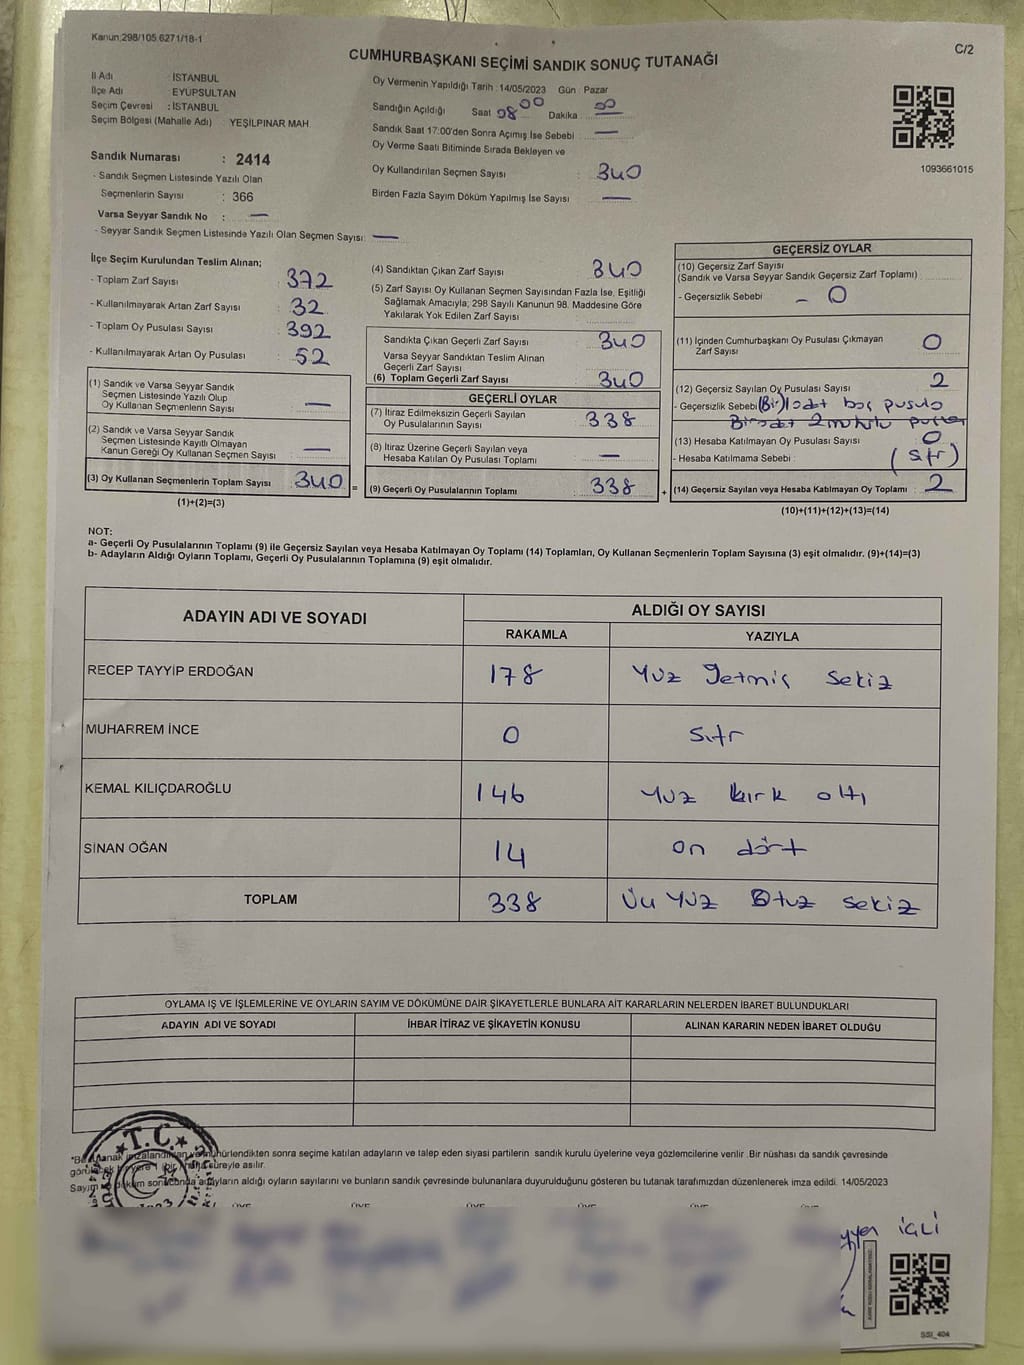 Kanun;298/105.6271/18-1
C/2
CUMHURBAŞKANI SEÇİMİ SANDIK SONUÇ TUTANAĞI
İl Adı : İSTANBUL
İlçe Adı : EYÜPSULTAN
Seçim Çevresi : İSTANBUL
Seçim Bölgesi (Mahalle Adı) YEŞİLPINAR MAH.
Oy Vermenin Yapıldığı Tarih : 14/05/2023 Gün : Pazar
Sandığın Açıldığı Saat 08 00 Dakika :
Sandık Saat 17:00'den Sonra Açımış İse Sebebi : —
Oy Verme Saati Bitiminde Sırada Bekleyen ve
Oy Kullandırılan Seçmen Sayısı : 340
Birden Fazla Sayım Döküm Yapılmış İse Sayısı : —
1093661015
Sandık Numarası : 2414
- Sandık Seçmen Listesinde Yazılı Olan
Seçmenlerin Sayısı : 366
Varsa Seyyar Sandık No : —
- Seyyar Sandık Seçmen Listesinde Yazılı Olan Seçmen Sayısı: —
İlçe Seçim Kurulundan Teslim Alınan;
- Toplam Zarf Sayısı : 372
- Kullanılmayarak Artan Zarf Sayısı : 32
- Toplam Oy Pusulası Sayısı : 392
- Kullanılmayarak Artan Oy Pusulası : 52
(1) Sandık ve Varsa Seyyar Sandık
Seçmen Listesinde Yazılı Olup
Oy Kullanan Seçmenlerin Sayısı : —
(2) Sandık ve Varsa Seyyar Sandık
Seçmen Listesinde Kayıtlı Olmayan
Kanun Gereği Oy Kullanan Seçmen Sayısı : —
(3) Oy Kullanan Seçmenlerin Toplam Sayısı : 340 =
(1)+(2)=(3)
(4) Sandıktan Çıkan Zarf Sayısı : 340
(5) Zarf Sayısı Oy Kullanan Seçmen Sayısından Fazla İse, Eşitliği
Sağlamak Amacıyla, 298 Sayılı Kanunun 98. Maddesine Göre
Yakılarak Yok Edilen Zarf Sayısı :
Sandıkta Çıkan Geçerli Zarf Sayısı : 340
Varsa Seyyar Sandıktan Teslim Alınan
Geçerli Zarf Sayısı :
(6) Toplam Geçerli Zarf Sayısı : 340
GEÇERLİ OYLAR
(7) İtiraz Edilmeksizin Geçerli Sayılan
Oy Pusulalarının Sayısı : 338
(8) İtiraz Üzerine Geçerli Sayılan veya
Hesaba Katılan Oy Pusulası Toplamı : —
(9) Geçerli Oy Pusulalarının Toplamı : 338 +
GEÇERSİZ OYLAR
(10) Geçersiz Zarf Sayısı
(Sandık ve Varsa Seyyar Sandık Geçersiz Zarf Toplamı)
- Geçersizlik Sebebi : - 0
(11) İçinden Cumhurbaşkanı Oy Pusulası Çıkmayan
Zarf Sayısı : 0
(12) Geçersiz Sayılan Oy Pusulası Sayısı : 2
- Geçersizlik Sebebi : (Bir) 1 adet boş pusula
Bir adet 2 mühürlü pusula
(13) Hesaba Katılmayan Oy Pusulası Sayısı : 0
- Hesaba Katılmama Sebebi : (Sıfır)
(14) Geçersiz Sayılan veya Hesaba Katılmayan Oy Toplamı : 2
(10)+(11)+(12)+(13)=(14)
NOT:
a- Geçerli Oy Pusulalarının Toplamı (9) ile Geçersiz Sayılan veya Hesaba Katılmayan Oy Toplamı (14) Toplamları, Oy Kullanan Seçmenlerin Toplam Sayısına (3) eşit olmalıdır. (9)+(14)=(3)
b- Adayların Aldığı Oyların Toplamı, Geçerli Oy Pusulalarının Toplamına (9) eşit olmalıdır.
ADAYIN ADI VE SOYADI ALDIĞI OY SAYISI
RAKAMLA YAZIYLA
RECEP TAYYİP ERDOĞAN 178 Yüz Yetmiş Sekiz
MUHARREM İNCE 0 Sıfır
KEMAL KILIÇDAROĞLU 146 Yüz kırk altı
SİNAN OĞAN 14 on dört
TOPLAM 338 Üç Yüz Otuz Sekiz
OYLAMA İŞ VE İŞLEMLERİNE VE OYLARIN SAYIM VE DÖKÜMÜNE DAİR ŞİKAYETLERLE BUNLARA AİT KARARLARIN NELERDEN İBARET BULUNDUKLARI
ADAYIN ADI VE SOYADI İHBAR İTİRAZ VE ŞİKAYETİN KONUSU ALINAN KARARIN NEDEN İBARET OLDUĞU
T.C.
*Bu tutanak imzalandıktan ve mühürlendikten sonra seçime katılan adayların ve talep eden siyasi partilerin sandık kurulu üyelerine veya gözlemcilerine verilir. Bir nüshası da sandık çevresinde
görülecek bir yere 1 (bir) hafta süreyle asılır.
Sayım ve döküm sonucunda adayların aldığı oyların sayılarını ve bunların sandık çevresinde bulunanlara duyurulduğunu gösteren bu tutanak tarafımızdan düzenlenerek imza edildi. 14/05/2023
ÜYE ÜYE ÜYE ÜYE ÜYE
İGLİ
SSI_404